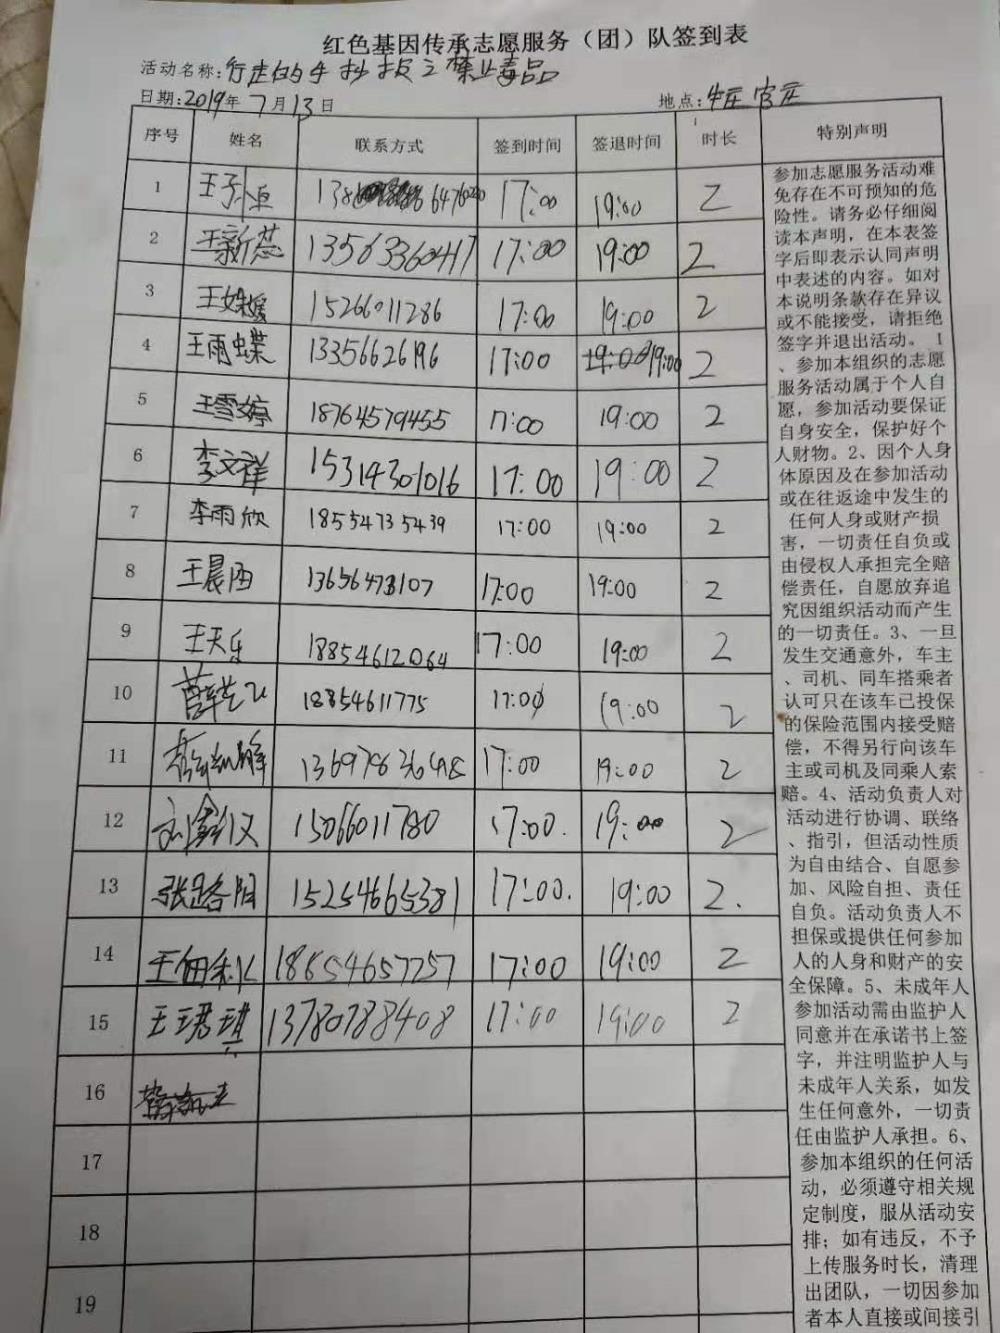 红色基因传承志愿服务（团）队签到表
活动名称:行走的手抄报之禁止毒品
日期:2019年7月13日 地点:牛庄官庄
序号 姓名 联系方式 签到时间 签退时间 时长 特别声明
1 王子恒 138 6476 17:00 19:00 2
2 王新蕊 13563360417 17:00 19:00 2
3 王姝媛 15266011286 17:00 19:00 2
4 王雨蝶 13356626196 17:00 19:00 19:00 2
5 王雪婷 18764579455 17:00 19:00 2
6 李文祥 15314301016 17:00 19:00 2
7 李雨欣 18554735439 17:00 19:00 2
8 王晨 17:00 19:00 2
9 王天乐 18854612064 17:00 19:00 2
10 薛 18854611775 17:00 19:00 2
11 17:00 19:00 2
12 刘鑫汉 15066011780 17:00. 19:00 2
13 张路阳 15254665381 17:00. 19:00 2.
14 王 18654657257 17:00 19:00 2
15 王珺琪 13780788408 17:00 19:00 2
16
17
18
19
参加志愿服务活动难
免存在不可预知的危
险性。请务必仔细阅
读本声明，在本表签
字后即表示认同声明
中表述的内容。如对
本说明条款存在异议
或不能接受，请拒绝
签字并退出活动。 1
、参加本组织的志愿
服务活动属于个人自
愿，参加活动要保证
自身安全，保护好个
人财物。2、因个人身
体原因及在参加活动
或在往返途中发生的
任何人身或财产损
害，一切责任自负或
由侵权人承担完全赔
偿责任，自愿放弃追
究因组织活动而产生
的一切责任。3、一旦
发生交通意外，车主
、司机、同车搭乘者
认可只在该车已投保
的保险范围内接受赔
偿，不得另行向该车
主或司机及同乘人索
赔。4、活动负责人对
活动进行协调、联络
、指引，但活动性质
为自由结合、自愿参
加、风险自担、责任
自负。活动负责人不
担保或提供任何参加
人的人身和财产的安
全保障。5、未成年人
参加活动需由监护人
同意并在承诺书上签
字，并注明监护人与
未成年人关系，如发
生任何意外，一切责
任由监护人承担。6、
参加本组织的任何活
动，必须遵守相关规
定制度，服从活动安
排；如有违反，不予
上传服务时长，清理
出团队，一切因参加
者本人直接或间接引